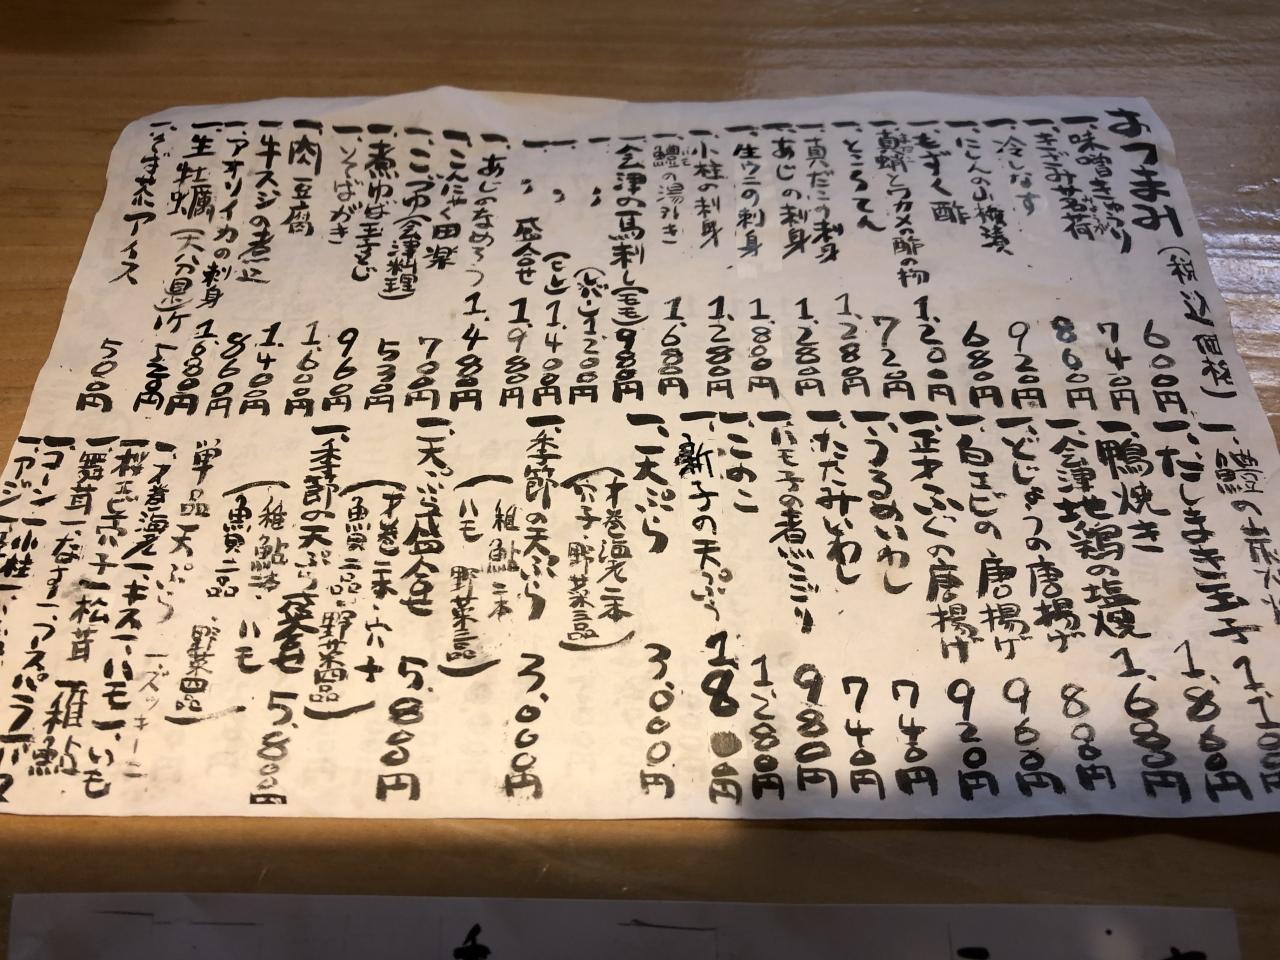 おつまみ(税込価格)
一、味噌きゅうり 600円
一、きざみ茗荷 740円
一、冷しなす 860円
一、にしんの山椒漬 920円
一、もずく酢 680円
一、真蛸とワカメの酢の物 1.200円
一、ところてん 720円
一、真だこの刺身 1.280円
一、あじの刺身 1.280円
一、生ウニの刺身 1.800円
一、小柱の刺身 1.280円
一、鱧の湯引き 1.680円
一、会津の馬刺し(モモ)980円
一、〃 (レバー)1.200円
一、〃 (ヒレ)1.400円
一、〃 盛合せ 1.980円
一、あじのなめろう 1.480円
一、こんにゃく田楽 700円
一、こづゆ(会津料理) 530円
一、煮ゆば玉子とじ 960円
一、そばがき 1.600円
一、肉豆腐 1.400円
一、牛スジの煮込 860円
一、アオリイカの刺身 1.680円
一、生牡蠣(大分県)1ケ
一、そば茶アイス 500円
一、だしまき玉子 1.860円
一、鴨焼き 1.680円
一、会津地鶏の塩焼
一、どじょうの唐揚げ 960円
一、白エビの唐揚げ 920円
一、正才ふぐの唐揚げ 740円
一、うるめいわし 740円
一、たたみいわし 980円
一、ハモ子の煮こごり 1.280円
一、このこ
一、新子の天ぷら
一、天ぷら 3.000円
(才巻海老二本
穴子・野菜二品)
一、季節の天ぷら 3.000円
(稚鮎二本
ハモ 野菜二品)
一、天ぷら盛合せ 5.800円
(才巻二本・穴子
魚二品・野菜四品)
一、季節の天ぷら盛合せ 5.800円
(稚鮎二本・ハモ
魚二品 野菜四品)
単品天ぷら
一、才巻海老一、キス一、ハモ一、いも
一、ズッキーニ
一、桜エビ一、穴子一、松茸 一、稚鮎
一、舞茸一、なす一、アスパラ
一、コーン一、小柱
一、アジ